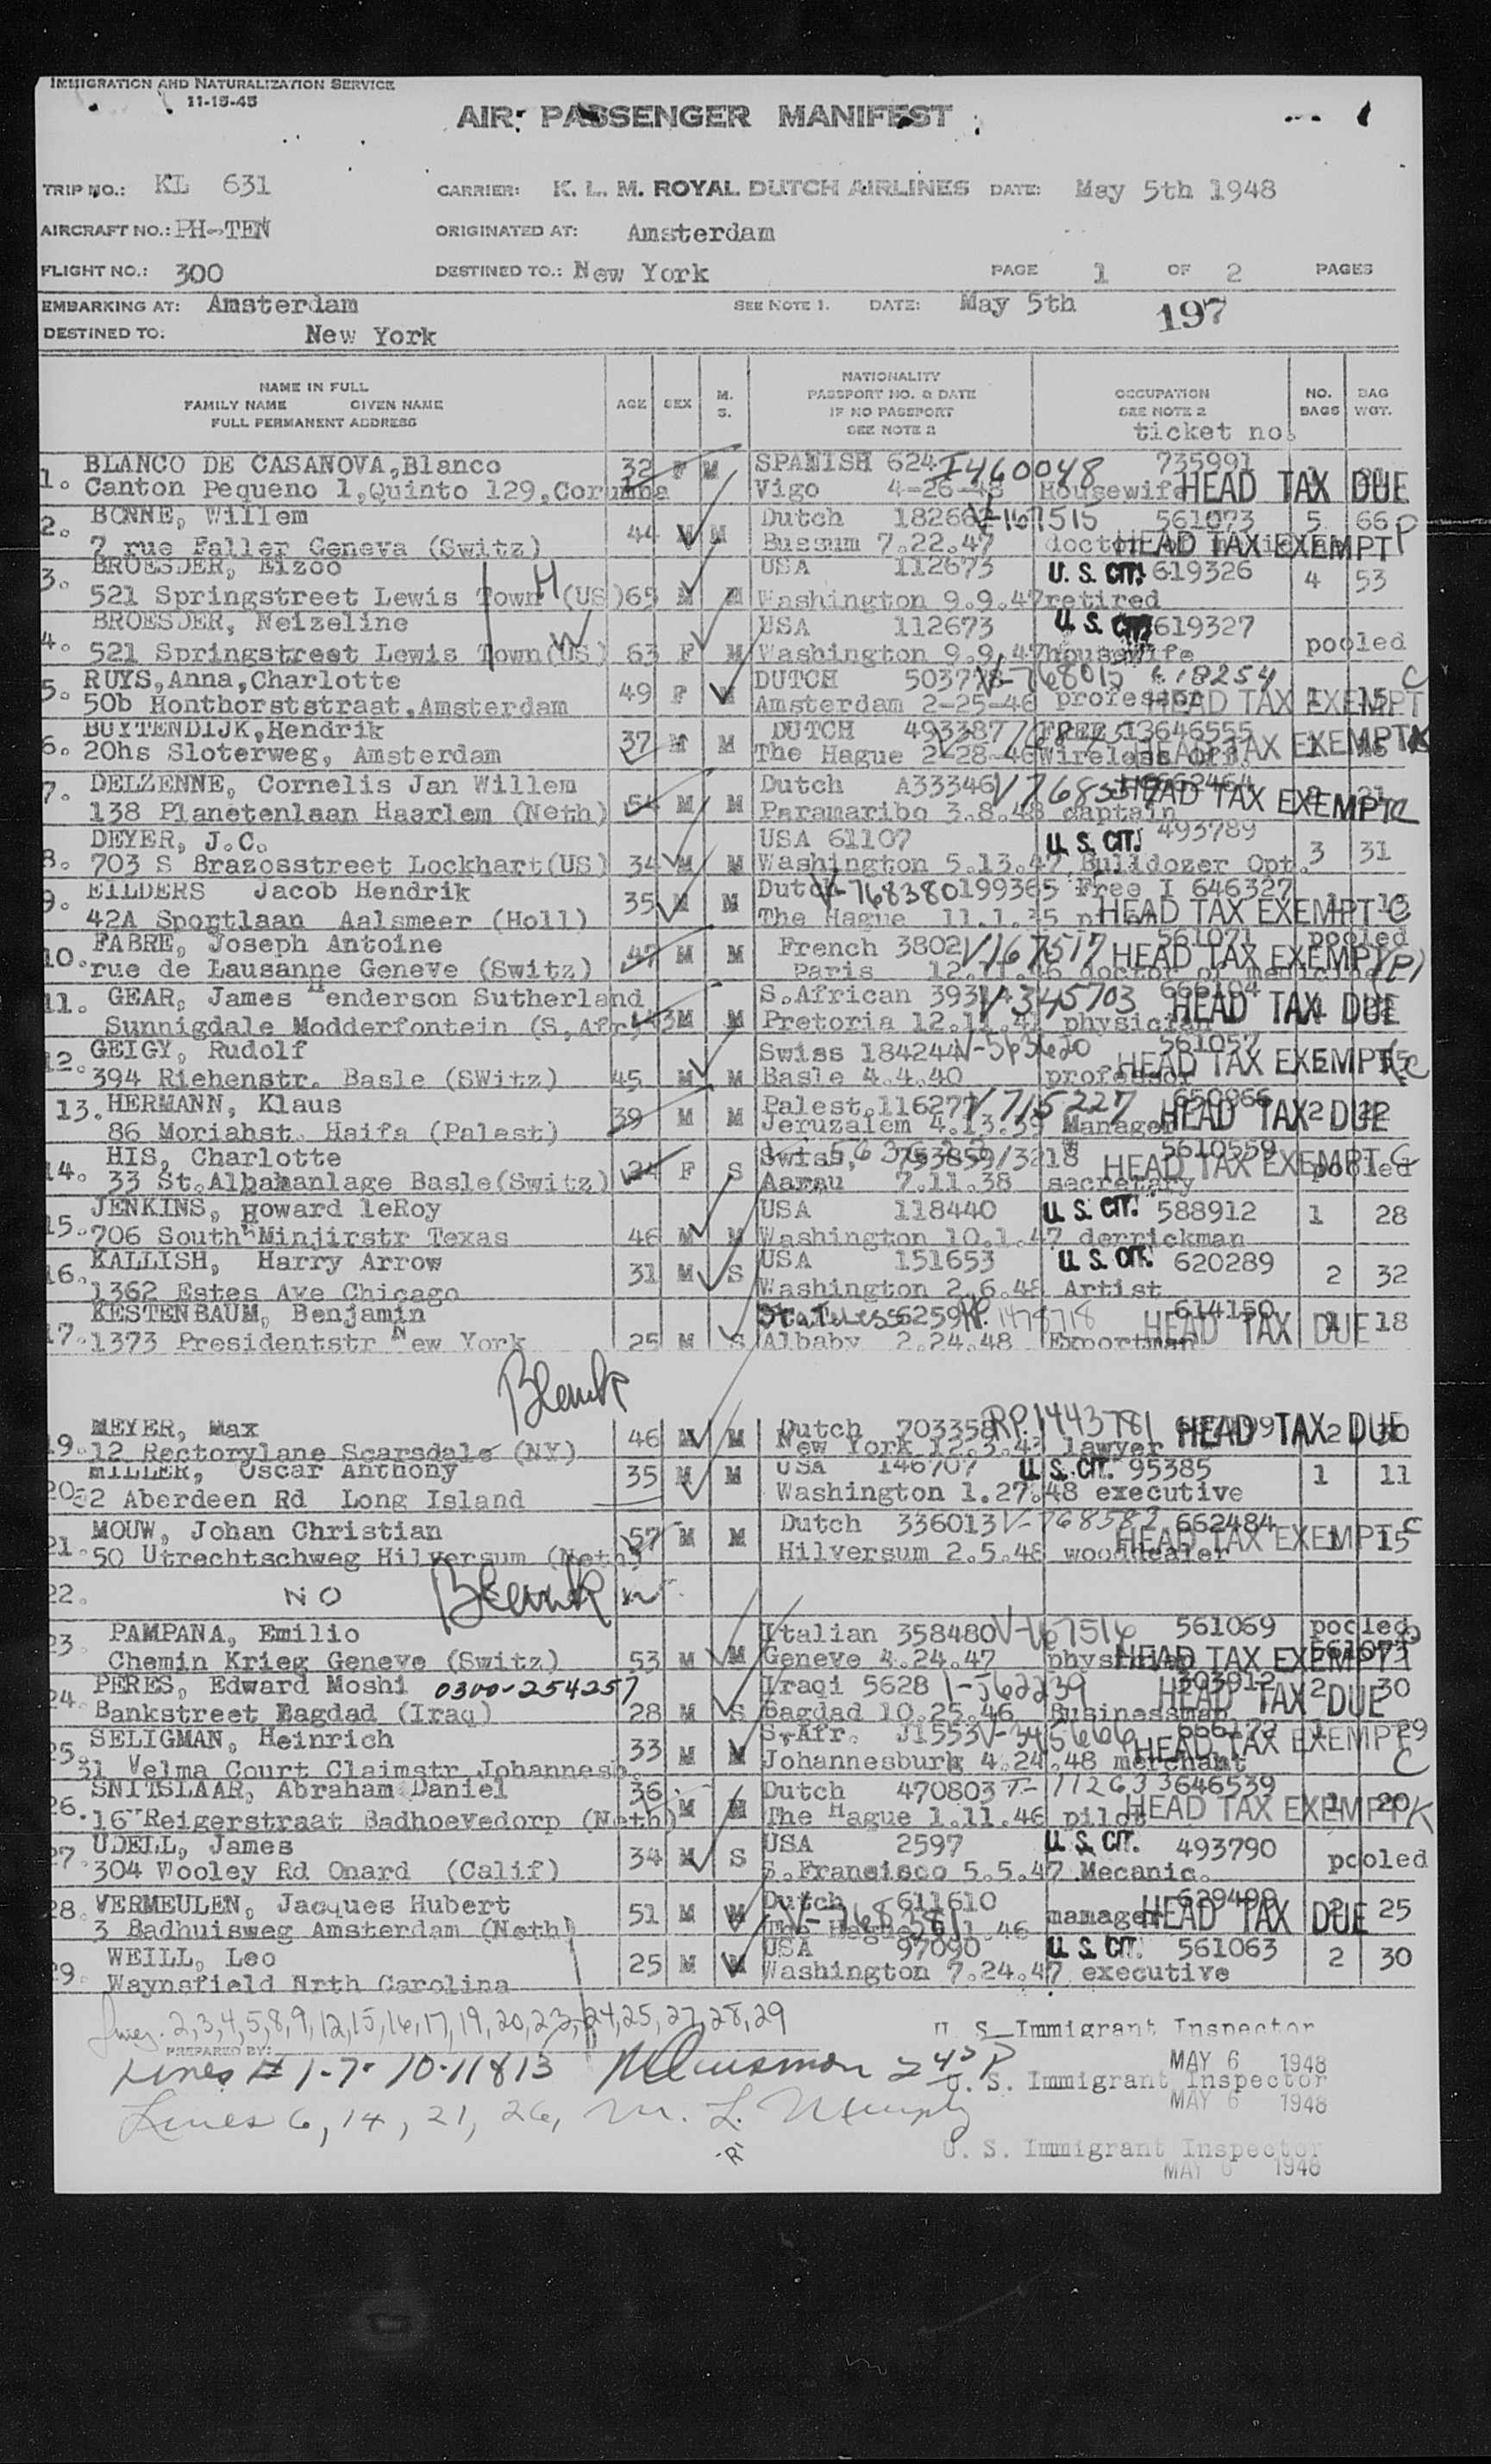 IMMIGRATION AND NATURALIZATION SERVICE
11-15-45
AIR PASSENGER MANIFEST
TRIP NO.: KL 631 CARRIER: K. L. M. ROYAL DUTCH AIRLINES DATE: May 5th 1948
AIRCRAFT NO.: PH-TEN ORIGINATED AT: Amsterdam
FLIGHT NO.: 300 DESTINED TO.: New York PAGE 1 OF 2 PAGES
EMBARKING AT: Amsterdam SEE NOTE 1. DATE: May 5th 197
DESTINED TO. New York
NAME IN FULL FAMILY NAME GIVEN NAME FULL PERMANENT ADDRESS AGE SEX M. S. NATIONALITY PASSPORT NO. & DATE IF NO PASSPORT SEE NOTE 2 OCCUPATION SEE NOTE 2 ticket no. NO. BAGS BAG WGT.
1. BLANCO DE CASANOVA,Blanco 32 F M SPANISH 624 I460048 735991
Canton Pequeno 1,Quinto 129,Corunna Vigo 4-26-48 Housewife HEAD TAX DUE
2. BONNE, Willem 44 M M Dutch 561073 5 66 P
7 rue Faller Geneva (Switz) Bussum 7.22.47 HEAD TAX EXEMPT
3. BROESDER, Eizoo USA 112673 U. S. CIT. 619326 4 53
521 Springstreet Lewis Town H (US)65 M M Washington 9.9.47 retired
4. BROESDER, Neizeline USA 112673 U. S. CIT. 619327 pooled
521 Springstreet Lewis Town(US) W 63 F M Washington 9.9.47 housewife
5. RUYS,Anna,Charlotte 49 F M DUTCH V-768015 C
50b Honthorststraat,Amsterdam Amsterdam 2-25-46 professor HEAD TAX EXEMPT 1 15
6. BUYTENDIJK,Hendrik 37 M M DUTCH 493387 FREE 13646555
20hs Sloterweg, Amsterdam The Hague 2-28-46 Wireless HEAD TAX EXEMPT
7. DELZENNE, Cornelis Jan Willem 54 M M Dutch A33346 662464
138 Planetenlaan Haarlem (Neth) Paramaribo 3.8.48 captain HEAD TAX EXEMPT C
8. DEYER, J.C. USA 61107 U. S. CIT. 493789
703 S Brazosstreet Lockhart(US) 34 M M Washington 5.13.47 Bulldozer Opt. 3 31
9. EILDERS Jacob Hendrik 35 M M Dutch V-768380 199365 Free I 646327
42A Sportlaan Aalsmeer (Holl) The Hague 11.1.35 HEAD TAX EXEMPT C
10. FABRE, Joseph Antoine 47 M M French 3802 V167517 561071 pooled
rue de Lausanne Geneve (Switz) Paris 12.11.46 doctor of medicine HEAD TAX EXEMPT (P)
11. GEAR, James Henderson Sutherland S.African V345703 666104
Sunnigdale Modderfontein (S,Afr) 43 M M Pretoria physician HEAD TAX DUE
12. GEIGY, Rudolf Swiss 184244 V-563620 561057
394 Riehenstr. Basle (SWitz) 45 M M Basle 4.4.40 professor HEAD TAX EXEMPT C
13. HERMANN, Klaus 39 M M Palest.116277 V715227 650966
86 Moriahst. Haifa (Palest) Jeruzalem 4.13.39 Manager HEAD TAX DUE 2 22
14. HIS, Charlotte 24 F S Swiss, 753859/3218 5610559 C
33 St.Albananlage Basle(Switz) Aarau 7.11.38 secretary HEAD TAX EXEMPT pooled
15. JENKINS, Howard leRoy USA 118440 U. S. CIT. 588912 1 28
706 South Minjirstr Texas 46 M M Washington 10.1.47 derrickman
16. KALLISH, Harry Arrow 31 M S USA 151653 U. S. CIT. 620289 2 32
1362 Estes Ave Chicago Washington 2.6.48 Artist
17. KESTENBAUM, Benjamin Stateless 6259 RP. 1478718 614150 1 18
1373 Presidentstr New York 25 M S Albaby 2.24.48 Exportman HEAD TAX DUE
Blank
19. MEYER, Max 46 M M Dutch 703358 RP.1443781 2
12 Rectorylane Scarsdale (NY) New York lawyer HEAD TAX DUE
20. MILLER, Oscar Anthony 35 M M USA 146707 U. S. CIT. 95385 1 11
32 Aberdeen Rd Long Island Washington 1.27.48 executive
21. MOUW, Johan Christian 57 M M Dutch 336013 V-768582 662484 C
50 Utrechtschweg Hilversum (Neth) Hilversum 2.5.48 wooddealer HEAD TAX EXEMPT 1 15
22. NO Blank
23. PAMPANA, Emilio Italian 358480 V-167516 561069 pooled
Chemin Krieg Geneve (Switz) 53 M M Geneve 4.24.47 HEAD TAX EXEMPT
24. PERES, Edward Moshi 0300-254257 Iraqi 5628 I-562239 303912 2 30
Bankstreet Bagdad (Iraq) 28 M S Bagdad 10.25.46 Businessman HEAD TAX DUE
25. SELIGMAN, Heinrich 33 M M S.Afr. J1553 V-345666
31 Velma Court Claimstr Johannesb. Johannesburg 4.24.48 merchant HEAD TAX EXEMPT C
26. SNITSLAAR, Abraham Daniel 36 M M Dutch 470803 646539
16 Reigerstraat Badhoevedorp (Neth) The Hague 1.11.46 pilot HEAD TAX EXEMPT 1 20 K
27. UDELL, James 34 M S USA 2597 U. S. CIT. 493790 pooled
304 Wooley Rd Onard (Calif) S.Francisco 5.5.47 Mecanic.
28. VERMEULEN, Jacques Hubert 51 M M Dutch 611610 629498 2 25
3 Badhuisweg Amsterdam (Neth) The Hague V-768581 mamager HEAD TAX DUE
29. WEILL, Leo 25 M M USA 97090 U. S. CIT. 561063 2 30
Waynsfield Nrth Carolina Washington 7.24.47 executive
2,3,4,5,8,9,12,15,16,17,19,20,23,24,25,27,28,29 U. S. Immigrant Inspector
PREPARED BY:
MAY 6 1948
Lines # 1-7-10-11&13 U. S. Immigrant Inspector
MAY 6 1948
Lines 6, 14, 21, 26, M. L. Murphy
U. S. Immigrant Inspector
MAY 6 1948